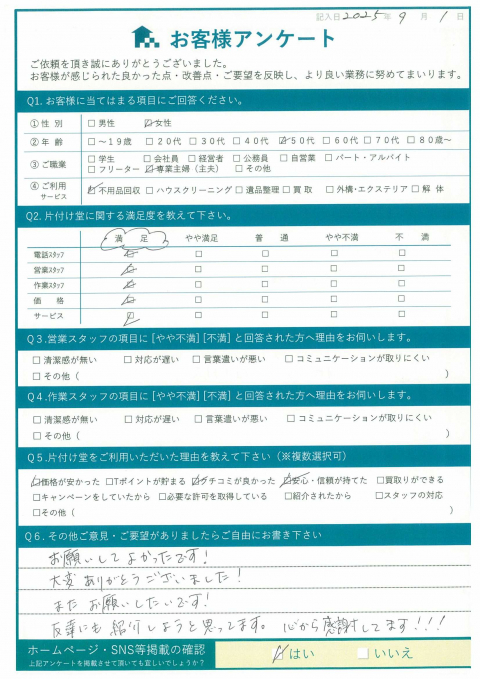 記入日 2025年 9月 1日
お客様アンケート
ご依頼を頂き誠にありがとうございました。
お客様が感じられた良かった点・改善点・ご要望を反映し、より良い業務に努めてまいります。
Q1. お客様に当てはまる項目にご回答ください。
①性 別 □男性 ☑女性
②年 齢 □〜19歳 □20代 □30代 □40代 ☑50代 □60代 □70代 □80歳〜
③ご職業 □学生 □会社員 □経営者 □公務員 □自営業 □パート・アルバイト
□フリーター ☑専業主婦(主夫) □その他
④ご利用サービス ☑不用品回収 □ハウスクリーニング □遺品整理 □買 取 □外構・エクステリア □解 体
Q2. 片付け堂に関する満足度を教えて下さい。
満 足 やや満足 普 通 やや不満 不 満
電話スタッフ ☑ □ □ □ □
営業スタッフ ☑ □ □ □ □
作業スタッフ ☑ □ □ □ □
価 格 ☑ □ □ □ □
サービス ☑ □ □ □ □
Q3.営業スタッフの項目に[やや不満][不満]と回答された方へ理由をお伺いします。
□清潔感が無い □対応が遅い □言葉遣いが悪い □コミュニケーションが取りにくい
□その他( )
Q4.作業スタッフの項目に[やや不満][不満]と回答された方へ理由をお伺いします。
□清潔感が無い □対応が遅い □言葉遣いが悪い □コミュニケーションが取りにくい
□その他( )
Q5.片付け堂をご利用いただいた理由を教えて下さい(※複数選択可)
☑価格が安かった □Tポイントが貯まる ☑クチコミが良かった ☑安心・信頼が持てた □買取りができる
□キャンペーンをしていたから □必要な許可を取得している □紹介されたから □スタッフの対応
□その他( )
Q6.その他ご意見・ご要望がありましたらご自由にお書き下さい
お願いしてよかったです!
大変ありがとうございました!
またお願いしたいです!
友達にも紹介しようと思ってます。心から感謝してます!!!
ホームページ・SNS等掲載の確認 ☑はい □いいえ
上記アンケートを掲載させて頂いても宜しいでしょうか?